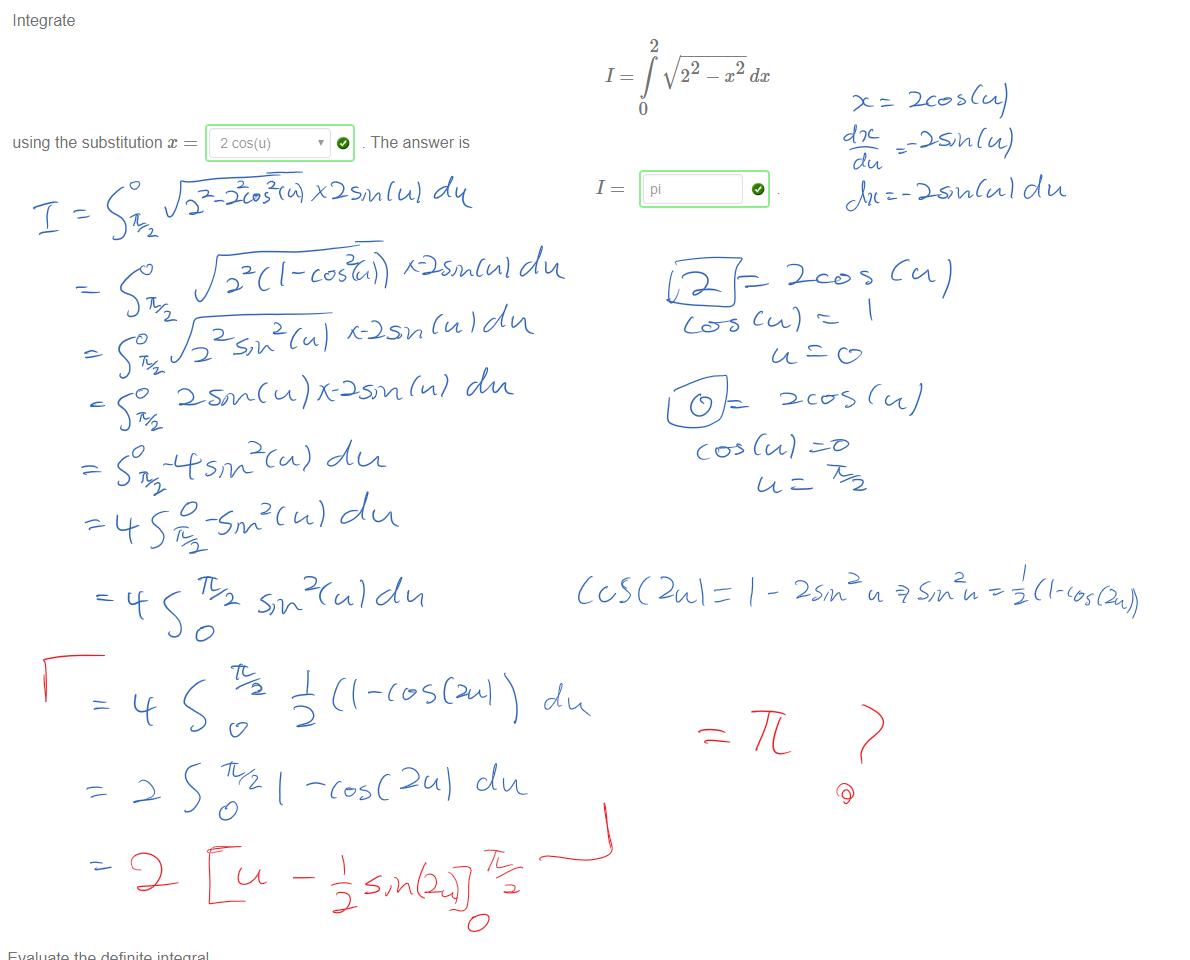 Integrate
I = ∫₀² √(2² − x²) dx
using the substitution x = 2 cos(u) . The answer is
I = pi .
x = 2cos(u)
dx/du = -2sin(u)
dx = -2sin(u) du
I = ∫_{π/2}^0 √(2²-2²cos²(u)) × 2sin(u) du
= ∫_{π/2}^0 √(2²(1-cos²(u))) ×-2sin(u) du
= ∫_{π/2}^0 √(2² sin²(u)) ×-2sin(u) du
= ∫_{π/2}^0 2sin(u) ×-2sin(u) du
= ∫_{π/2}^0 -4sin²(u) du
= 4 ∫_{π/2}^0 -sin²(u) du
= 4 ∫_0^{π/2} sin²(u) du
2 = 2cos(u)
cos(u) = 1
u = 0
0 = 2cos(u)
cos(u) = 0
u = π/2
cos(2u) = 1 - 2sin²u ⇒ sin²u = ½(1-cos(2u))
= 4 ∫_0^{π/2} ½ (1-cos(2u)) du
= 2 ∫_0^{π/2} 1 - cos(2u) du
= 2 [u - ½ sin(2u)]_0^{π/2}
= π ?
Evaluate the definite integral